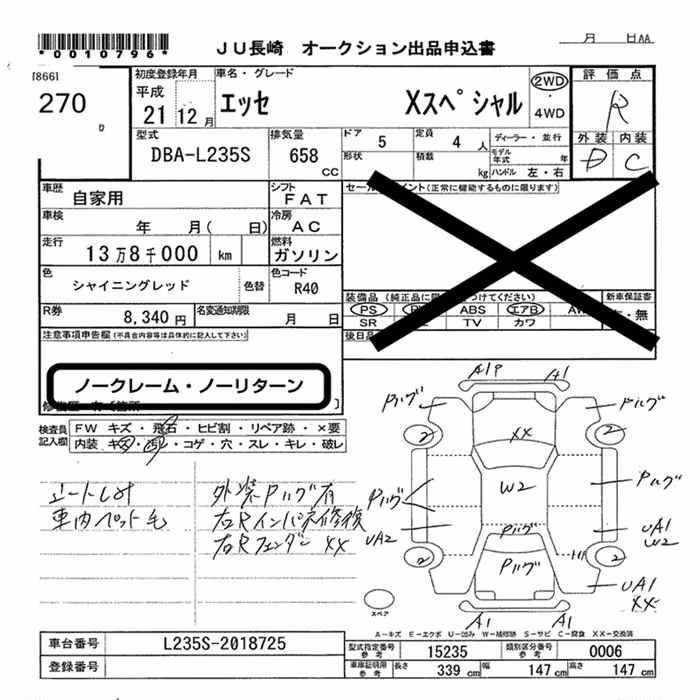 *0010796*
JU長崎 オークション出品申込書
月 日AA
[8661
270
初度登録年月
平成
21 12月
車名・グレード
エッセ Xスペシャル
2WD
・
4WD
評価点
R
外装 内装
D C
型式
DBA-L235S
排気量
658 CC
ドア 5
定員 4 人
ディーラー・並行
形状
積載 kg
モデル年式 年
ハンドル 左・右
車歴
自家用
シフト
FAT
車検
年 月( 日)
冷房
AC
走行
13万8千000 km
燃料
ガソリン
色
シャイニングレッド
色替
色コード
R40
R券
8,340円
名変通知期限
月 日
セール イント(正常に機能するものに限ります)
装備品(純正品に つけてください)
新車保証書
PS ABS エアB AW
・無
SR TV カワ
後日品
注意事項申告欄(不具合内容等は具体的に記入して下さい)
ノークレーム・ノーリターン
検査員記入欄
FW キズ・飛石・ヒビ割・リペア跡・×要
内装 キズ・汚レ・コゲ・穴・スレ・キレ・破レ
シートしみ
車内ペット毛
外装Pハゲ有
右Rインパネ修復
右Rフェンダー XX
A1P A1
Pハゲ Pハゲ
2 2
XX
W2
Pハゲ Pハゲ
UA2
UA1
W2
Pハゲ
2 2
Pハゲ
UA1
XX
スペア
A1 A1
A-キズ E-エクボ U-凹み W-補修跡 S-サビ C-腐食 XX-交換済
車台番号 L235S-2018725
登録番号
型式指定番号 参考 15235
類別区分番号 参考 0006
車庫証明用 参考 長さ 339 cm 幅 147 cm 高さ 147 cm